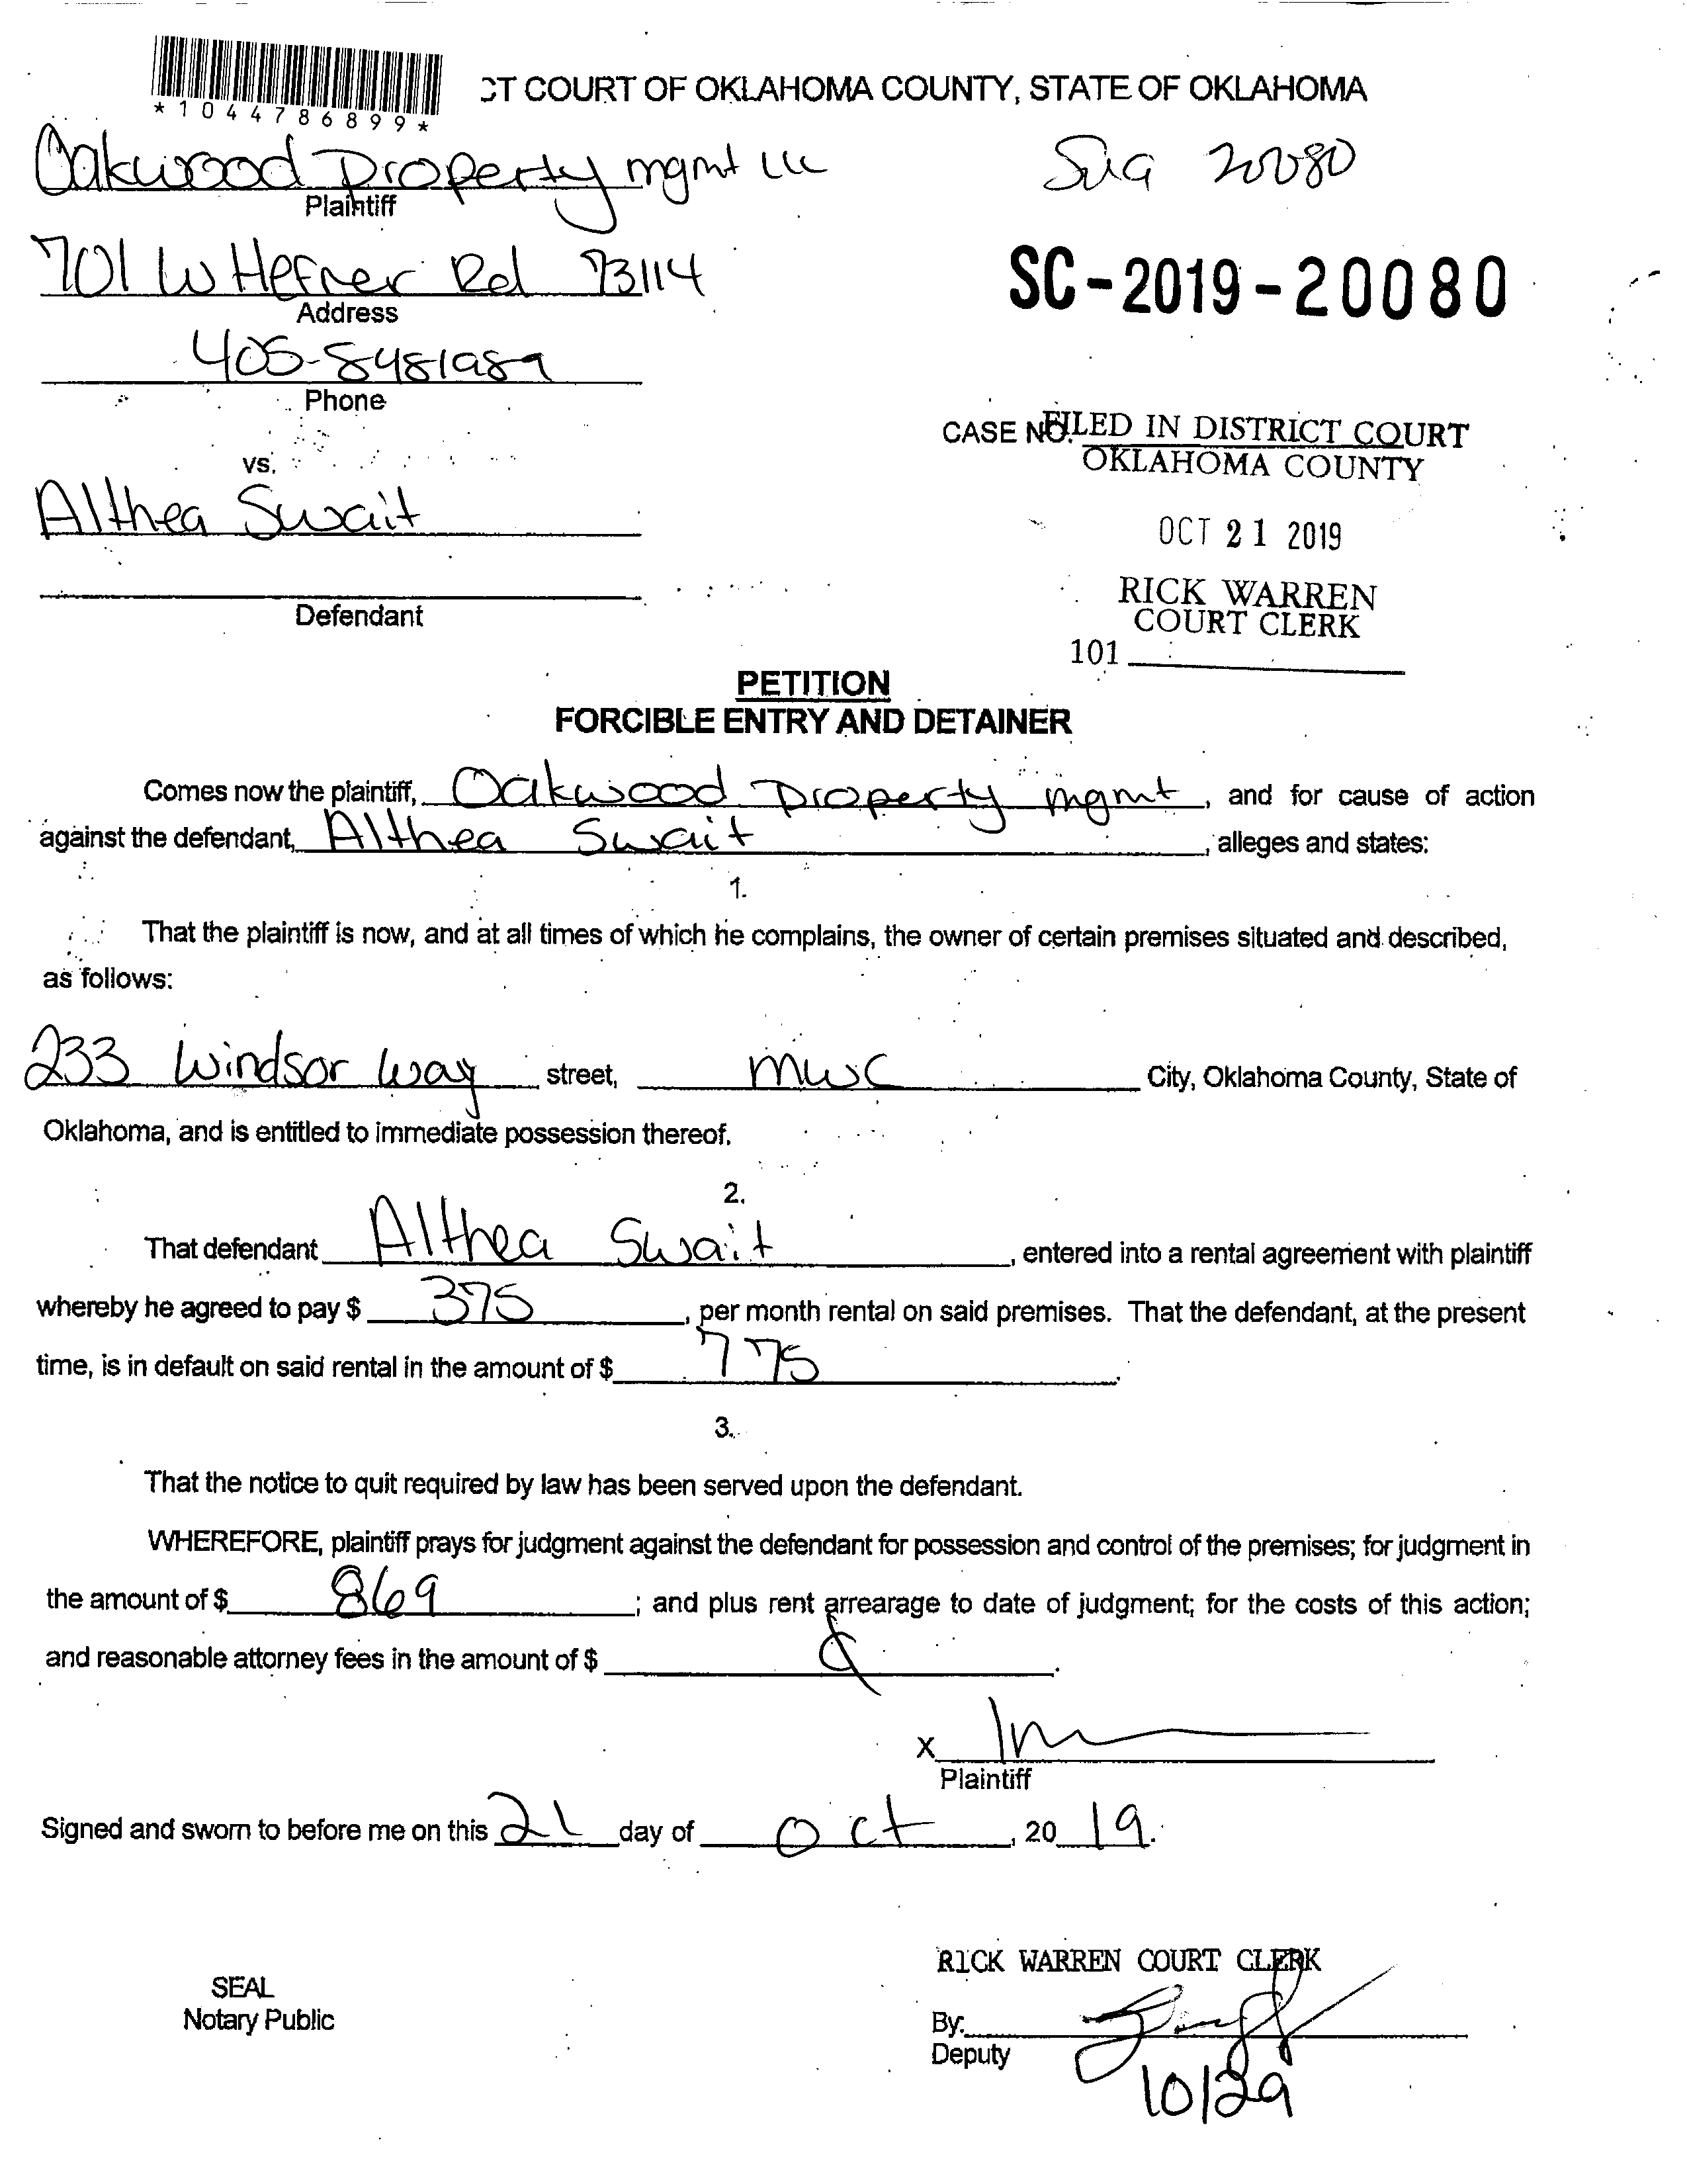 *1044786899*
CT COURT OF OKLAHOMA COUNTY, STATE OF OKLAHOMA
Oakwood Property mgmt llc
Plaintiff
20080
701 W Hefner Rd 73114
Address
SC-2019-20080
405-8481989
Phone
CASE NO. FILED IN DISTRICT COURT
OKLAHOMA COUNTY
vs.
Althea Swait
OCT 21 2019
Defendant
RICK WARREN
COURT CLERK
101
PETITION
FORCIBLE ENTRY AND DETAINER
Comes now the plaintiff, Oakwood Property mgmt, and for cause of action
against the defendant, Althea Swait, alleges and states:
1.
That the plaintiff is now, and at all times of which he complains, the owner of certain premises situated and described,
as follows:
233 Windsor Way street, mwc City, Oklahoma County, State of
Oklahoma, and is entitled to immediate possession thereof.
2.
That defendant Althea Swait, entered into a rental agreement with plaintiff
whereby he agreed to pay $ 375, per month rental on said premises. That the defendant, at the present
time, is in default on said rental in the amount of $ 775.
3.
That the notice to quit required by law has been served upon the defendant.
WHEREFORE, plaintiff prays for judgment against the defendant for possession and control of the premises; for judgment in
the amount of $ 869; and plus rent arrearage to date of judgment; for the costs of this action;
and reasonable attorney fees in the amount of $
X
Plaintiff
Signed and sworn to before me on this 21 day of Oct, 2019.
SEAL
Notary Public
RICK WARREN COURT CLERK
By:
Deputy
10/29